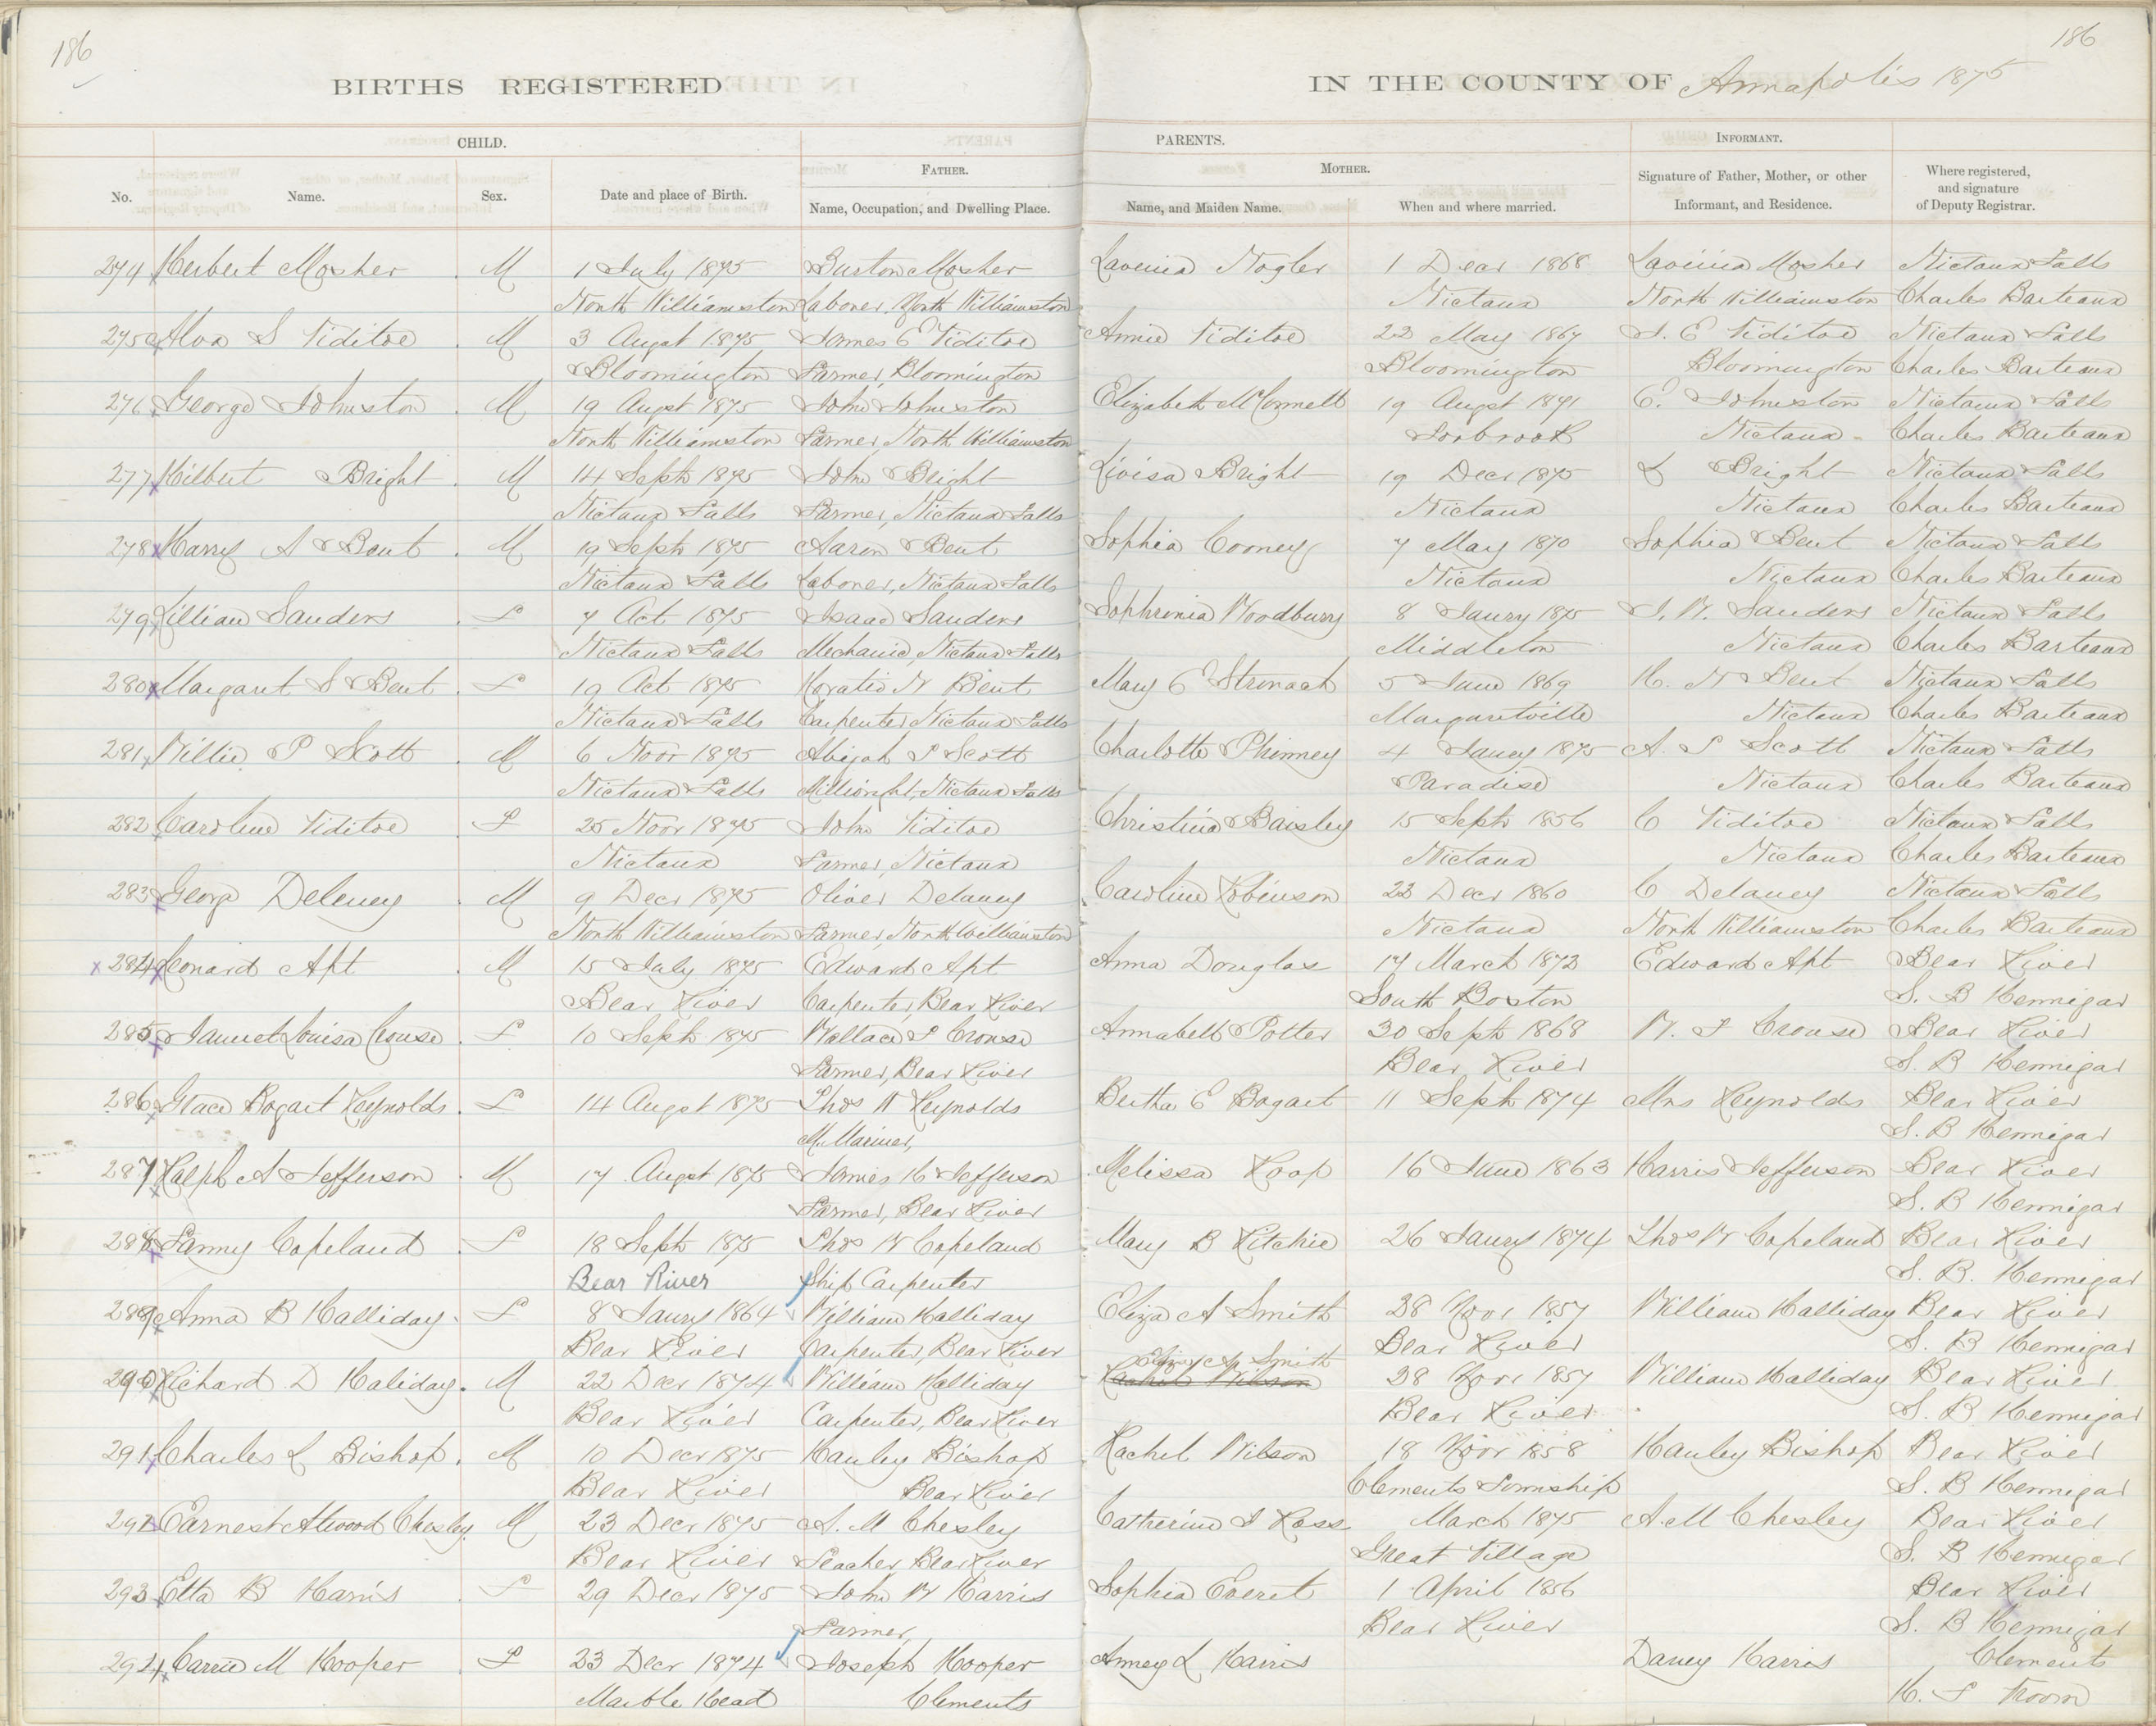 186
186
BIRTHS REGISTERED IN THE COUNTY OF Annapolis 1875
CHILD. PARENTS. INFORMANT.
FATHER. MOTHER.
No. Name. Sex. Date and place of Birth. Name, Occupation, and Dwelling Place. Name, and Maiden Name. When and where married. Signature of Father, Mother, or other Informant, and Residence. Where registered, and signature of Deputy Registrar.
274 Herbert Mosher M 1 July 1875 Burton Mosher Lavenia Nogler 1 Decr 1868 Lavinia Mosher Nictaux Falls
North Williamston Laborer, North Williamston Nictaux North Williamston Charles Barteaux
275 Alva S Viditoe M 3 Augst 1875 James E Viditoe Annie Viditoe 22 May 1867 J. E Viditoe Nictaux Falls
Bloomington Farmer, Bloomington Bloomington Bloomington Charles Barteaux
276 George Johnston M 19 Augst 1875 John Johnston Elizabeth McConnell 19 Augst 1871 E. Johnston Nictaux Falls
North Williamston Farmer, North Williamston Torbrook Nictaux Charles Barteaux
277 Hilbert Bright M 14 Septr 1875 John Bright Livisa Bright 19 Decr 1875 L Bright Nictaux Falls
Nictaux Falls Farmer, Nictaux Falls Nictaux Nictaux Charles Barteaux
278 Harry A Bent M 19 Septr 1875 Aaron Bent Sophia Cooney 7 May 1870 Sophia Bent Nictaux Falls
Nictaux Falls Laborer, Nictaux Falls Nictaux Nictaux Charles Barteaux
279 Lillian Sanders F 7 Oct 1875 Isaac Sanders Sophronia Woodbury 8 Jaury 1875 I. W. Sanders Nictaux Falls
Nictaux Falls Mechanic, Nictaux Falls Middleton Nictaux Charles Barteaux
280 Margaret S Bent F 19 Oct 1875 Horatio N Bent Mary E Stronach 5 June 1869 H. N Bent Nictaux Falls
Nictaux Falls Carpenter, Nictaux Falls Margaretville Nictaux Charles Barteaux
281 Willie P Scott M 6 Novr 1875 Abijah F Scott Charlotte Phinney 4 Jaury 1875 A F Scott Nictaux Falls
Nictaux Falls Millwright, Nictaux Falls Paradise Nictaux Charles Barteaux
282 Caroline Viditoe F 25 Novr 1875 John Viditoe Christina Baisley 15 Septr 1856 C Viditoe Nictaux Falls
Nictaux Farmer, Nictaux Nictaux Nictaux Charles Barteaux
283 George Deleney M 9 Decr 1875 Oliver Delaney Caroline Robinson 22 Decr 1860 C Delaney Nictaux Falls
North Williamston Farmer, North Williamston Nictaux North Williamston Charles Barteaux
284 Leonard Apt M 15 July 1875 Edward Apt Anna Douglas 17 March 1872 Edward Apt Bear River
Bear River Carpenter, Bear River South Boston S. B Hennigar
285 Jannet Louisa Crouse F 10 Septr 1875 Wallace F Crouse Annabell Potter 30 Septr 1868 W. F Crouse Bear River
Farmer, Bear River Bear River S. B Hennigar
286 Grace Bogart Reynolds F 14 Augst 1875 Thos W Reynolds Bertha E Bogart 11 Septr 1874 Mrs Reynolds Bear River
M. Mariner, S. B Hennigar
287 Ralph A Jefferson M 17 Augst 1875 James H Jefferson Melissa Roop 16 June 1863 Harris Jefferson Bear River
Farmer, Bear River S. B Hennigar
288 Fanny Copeland F 18 Septr 1875 Thos W Copeland Mary B Ritchie 26 Jaury 1874 Thos W Copeland Bear River
Bear River Ship Carpenter S. B. Hennigar
289 Anna B Halliday F 8 Jaury 1864 William Halliday Eliza A Smith 28 Novr 1857 William Halliday Bear River
Bear River Carpenter, Bear River Bear River S. B Hennigar
Eliza A Smith
290 Richard D Haliday M 22 Decr 1874 William Halliday Rachel Wilson 28 Novr 1857 William Halliday Bear River
Bear River Carpenter, Bear River Bear River S. B Hennigar
291 Charles L Bishop M 10 Decr 1875 Hanley Bishop Rachel Wilson 18 Novr 1858 Hanley Bishop Bear River
Bear River Bear River Clements Township S. B Hennigar
292 Earnest Atwood Chesley M 23 Decr 1875 A. M Chesley Catherine J Ross March 1875 A. M Chesley Bear River
Bear River Teacher, Bear River Great Village S. B Hennigar
293 Etta B Harris F 29 Decr 1875 John W Harris Sophia Everet 1 April 1856 Bear River
Farmer, Bear River S. B Hennigar
294 Carrie M Hooper F 23 Decr 1874 Joseph Hooper Anney L Harris Darcy Harris Clements
Marble Head Clements H. F Vroom